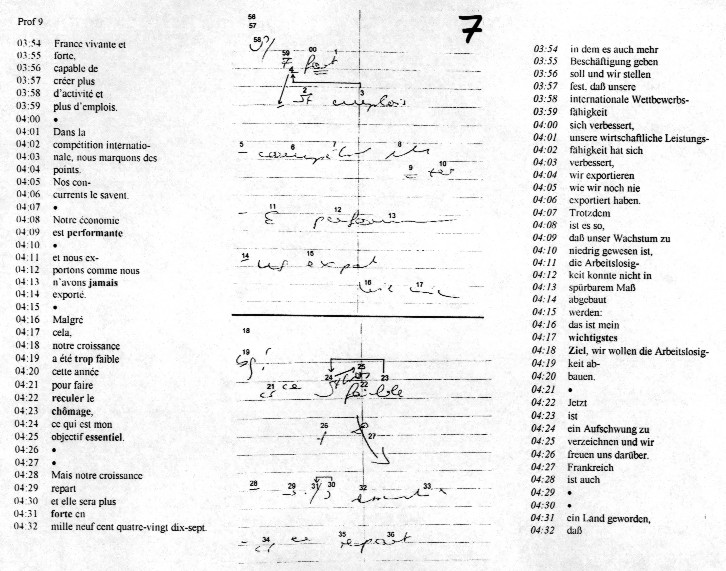 Prof 9
03:54 France vivante et
03:55 forte,
03:56 capable de
03:57 créer plus
03:58 d'activité et
03:59 plus d'emplois.
04:00 •
04:01 Dans la
04:02 compétition internatio-
04:03 nale, nous marquons des
04:04 points.
04:05 Nos con-
04:06 currents le savent.
04:07 •
04:08 Notre économie
04:09 est performante
04:10 •
04:11 et nous ex-
04:12 portons comme nous
04:13 n'avons jamais
04:14 exporté.
04:15 •
04:16 Malgré
04:17 cela,
04:18 notre croissance
04:19 a été trop faible
04:20 cette année
04:21 pour faire
04:22 reculer le
04:23 chômage,
04:24 ce qui est mon
04:25 objectif essentiel.
04:26 •
04:27 •
04:28 Mais notre croissance
04:29 repart
04:30 et elle sera plus
04:31 forte en
04:32 mille neuf cent quatre-vingt dix-sept.
7
56
57
58
59 00 1
2 3
5 6 7 8
9 10
11 12 13
14 15
16 17
18
19
24 25 23
21 22
26 27
28 29 31 30 32 33
34 35 36
03:54 in dem es auch mehr
03:55 Beschäftigung geben
03:56 soll und wir stellen
03:57 fest, daß unsere
03:58 internationale Wettbewerbs-
03:59 fähigkeit
04:00 sich verbessert,
04:01 unsere wirtschaftliche Leistungs-
04:02 fähigkeit hat sich
04:03 verbessert,
04:04 wir exportieren
04:05 wie wir noch nie
04:06 exportiert haben.
04:07 Trotzdem
04:08 ist es so,
04:09 daß unser Wachstum zu
04:10 niedrig gewesen ist,
04:11 die Arbeitslosig-
04:12 keit konnte nicht in
04:13 spürbarem Maß
04:14 abgebaut
04:15 werden:
04:16 das ist mein
04:17 wichtigstes
04:18 Ziel, wir wollen die Arbeitslosig-
04:19 keit ab-
04:20 bauen.
04:21 •
04:22 Jetzt
04:23 ist
04:24 ein Aufschwung zu
04:25 verzeichnen und wir
04:26 freuen uns darüber.
04:27 Frankreich
04:28 ist auch
04:29 •
04:30 •
04:31 ein Land geworden,
04:32 daß